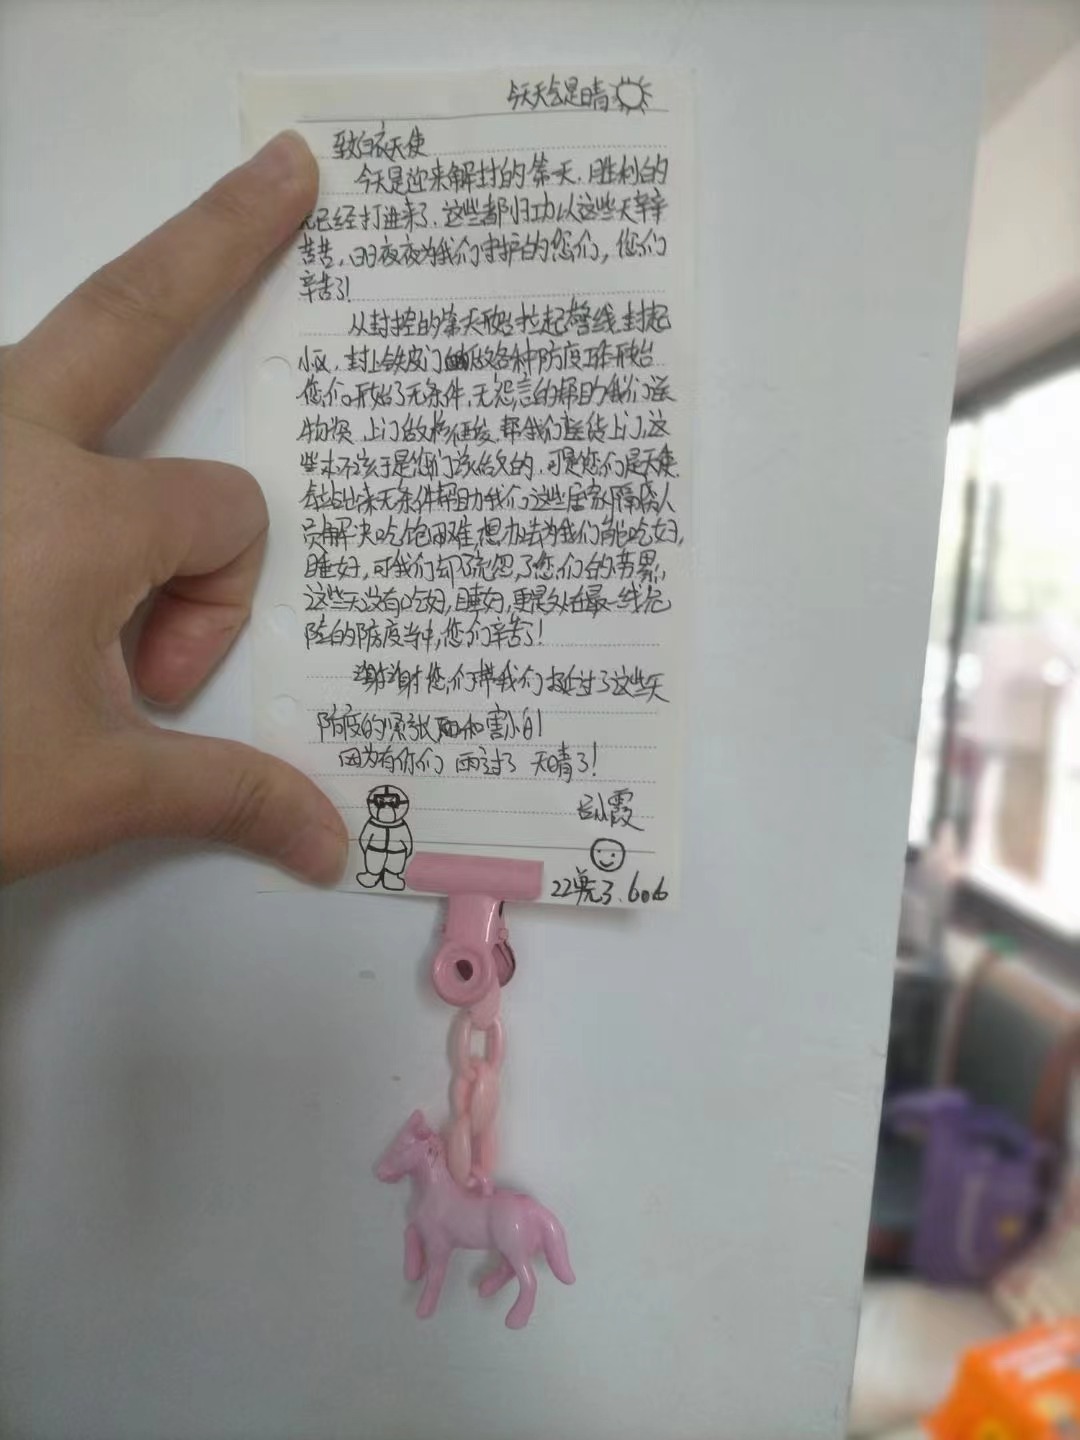 今天天会是晴
致白衣天使
今天是迎来解封的第一天，胜利的
已经打进来了，这些都归功以这些天辛辛
苦苦，日日夜夜为我们守护的您们，您们
辛苦了！
从封控的第一天开始拉起警线，封起
小区，封上铁皮门 做各种防疫工作开始
您们开始了无条件，无怨言的帮助我们送
物资 上门做核 帮我们送货上门，这
些本不该于是您们该给父的，可是您们是天使
站出来无条件帮助我们这些居家隔离人
员解决吃饱困难，想办法为我们能吃好，
睡好，可我们却了您们的劳累，
这些天没有吃好，睡好，更是处在最一线危
险的防疫当中，您们辛苦了！
谢谢您们带我们挺过了这些天
防疫的紧张和害怕！
因为有你们 雨过了 天晴了！
吕小霞
22单元3.606